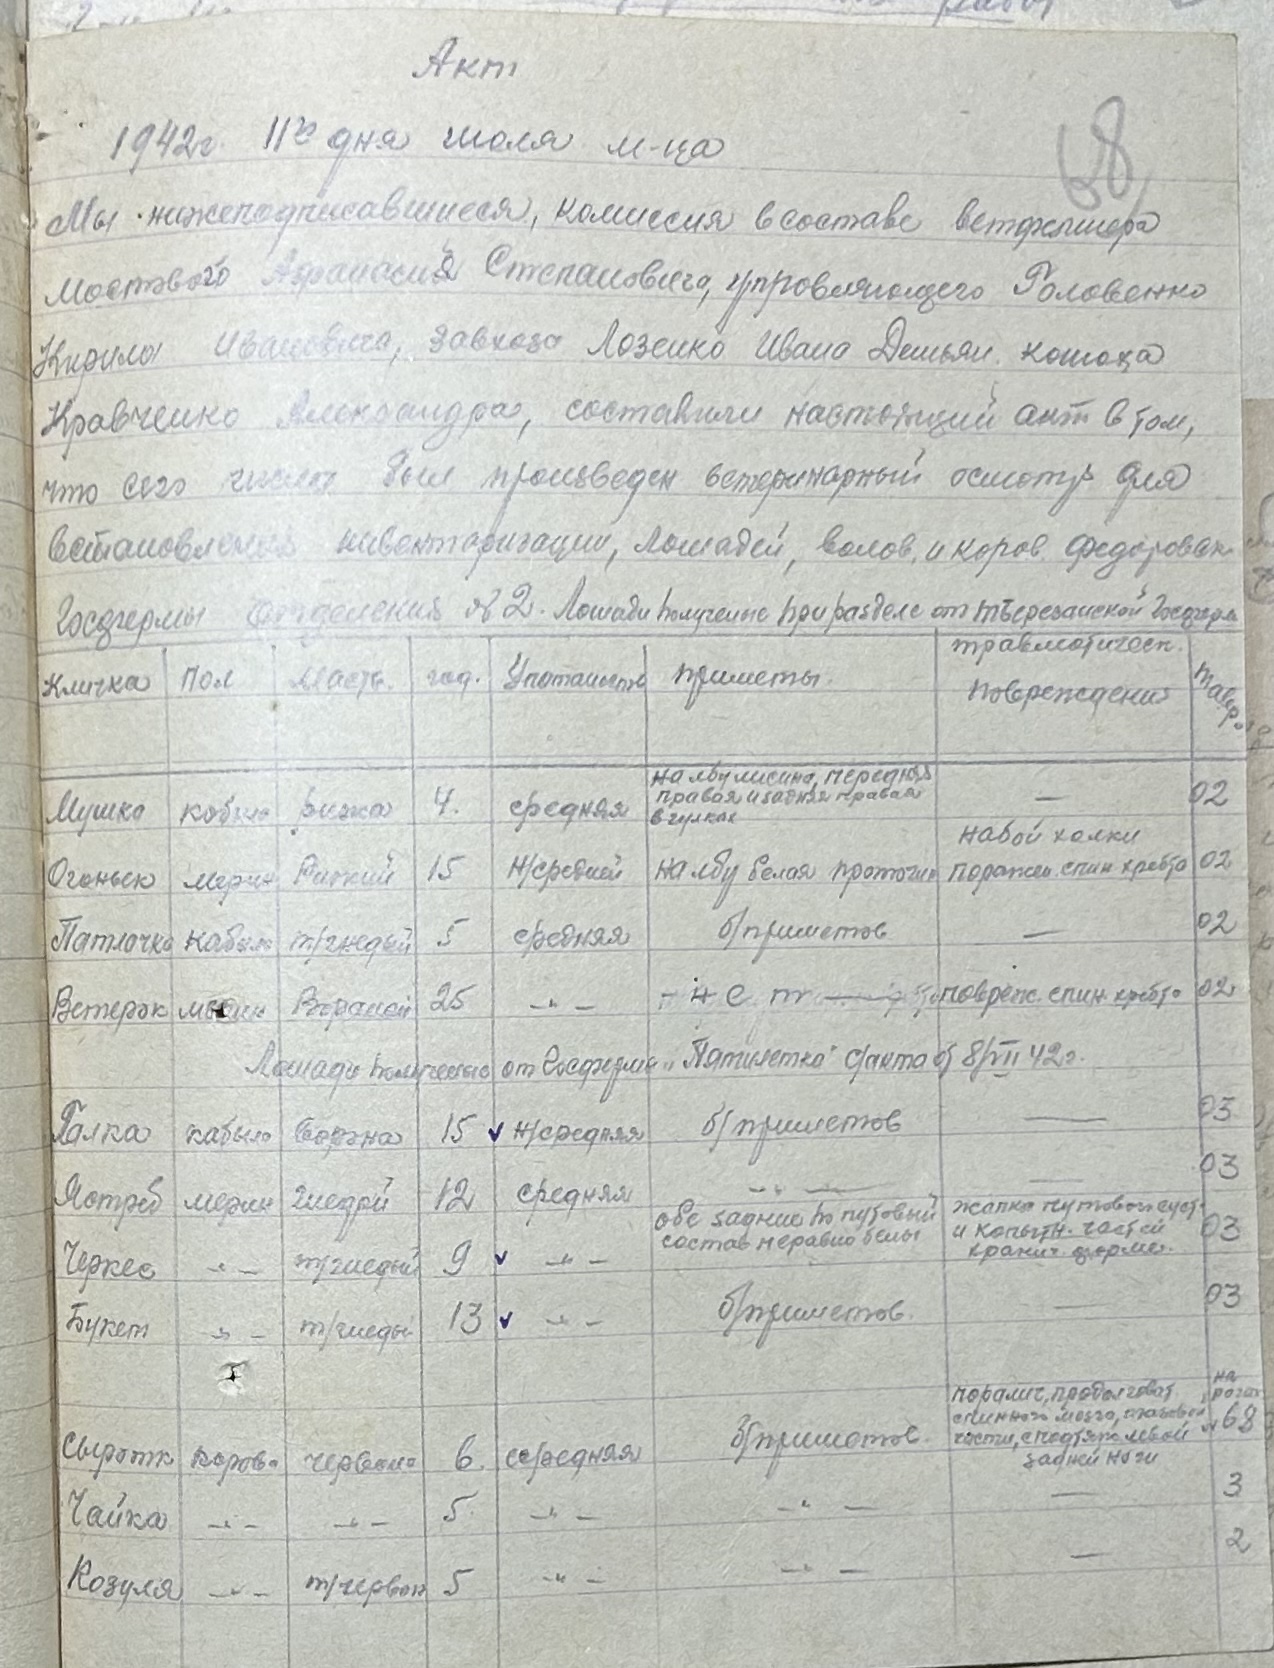 Акт
68
1942г. 11го дня июля м-ца
Мы нижеподписавшиеся, комиссия в составе ветфельшера
Мостового Афанасия Степановича, упровляющего Головенко
Кирила Ивановича, завхоза Лозенко Ивана Демьян. конюха
Кравченко Александра, составили настоящий акт в том,
что сего числа был произведен ветеринарный осмотр для
встановления инвентаризации, лошадей, волов, и коров. Федоровск
Госфермы отделения № 2. Лошади полученые при разделе от Тверезанской Госфермы
Кличка Пол Масть. год. Упитаность приметы. травмотическ. повреждения тавро
Мушка кобыла рижа 4. средняя на лбу лисина, передняя правая и задняя правая в чулках — 02
Огоньок мерин Рижий 15 н/средней на лбу белая проточина набой холки поражен. спин хребта 02
Патлочка кабыла т/гнедый 5 средняя б/приметов — 02
Ветерок мерин Вораной 25 -"- нет повреж. спин хребта 02
Лошади полученые от Госфермы „Пятилетка" с/акта от 8/VII 42г.
Галка кабыла ворана 15 н/средняя б/приметов — 03
Ястреб мерин гнедой 12 средняя -"- — 03
Черкес -"- т/гнедый 9 -"- обе задние по путовый состав неравно белы жапка путового суст. и копытн. частей хранич. форме. 03
Букет -"- т/гнеды 13 -"- б/приметов. — 03
Сыротк корова червона 6. середняя б/приметов. паралич, продолговат. спинного мозга, части, левой задней ноги на рогах № 68
Чайка -"- -"- 5. -"- -"- — 3
Козуля -"- т/червон 5 -"- -"- — 2